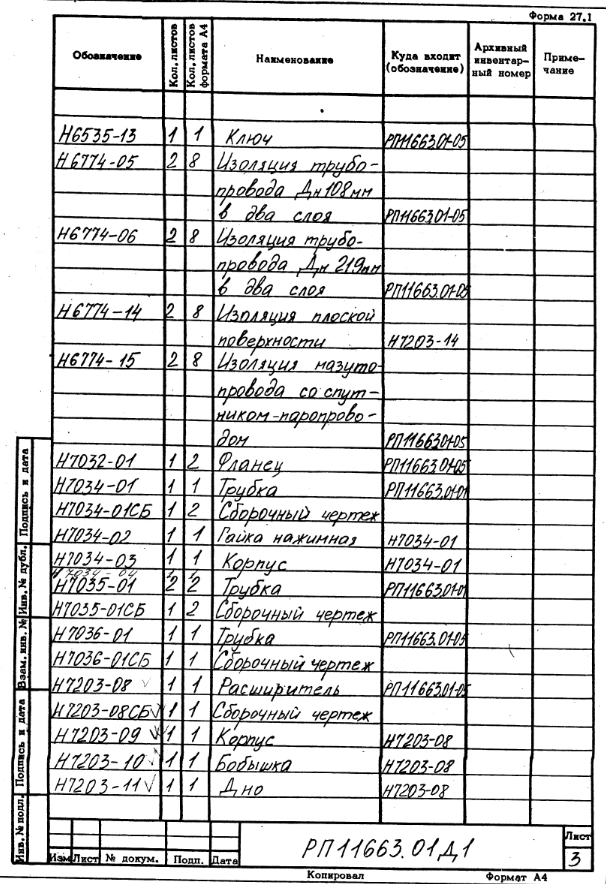 Форма 27.1
Обозначение Кол. листов Кол. листов формата А4 Наименование Куда входит (обозначение) Архивный инвентарный номер Примечание
Н6535-13 1 1 Ключ РП11663.01-05
Н6774-05 2 8 Изоляция трубо-
провода Дн 108мм
в два слоя РП11663.01-05
Н6774-06 2 8 Изоляция трубо-
провода Дн 219мм
в два слоя РП11663.01-05
Н6774-14 2 8 Изоляция плоской
поверхности Н7203-14
Н6774-15 2 8 Изоляция мазуто-
провода со спут-
ником-паропрово-
дом РП11663.01-05
Н7032-01 1 2 Фланец РП11663.01-05
Н7034-01 1 1 Трубка РП11663.01-01
Н7034-01СБ 1 2 Сборочный чертеж
Н7034-02 1 1 Гайка нажимная Н7034-01
Н7034-03 1 1 Корпус Н7034-01
Н7035-01 2 2 Трубка РП11663.01-01
Н7035-01СБ 1 2 Сборочный чертеж
Н7036-01 1 1 Трубка РП11663.01-05
Н7036-01СБ 1 1 Сборочный чертеж
Н7203-08 1 1 Расширитель РП11663.01-05
Н7203-08СБ 1 1 Сборочный чертеж
Н7203-09 1 1 Корпус Н7203-08
Н7203-10 1 1 Бобышка Н7203-08
Н7203-11 1 1 Дно Н7203-08
Инв. № подл. Подпись и дата Взам. инв. № Инв. № дубл. Подпись и дата
РП11663.01Д1
Лист
3
Изм Лист № докум. Подп. Дата
Копировал Формат А4